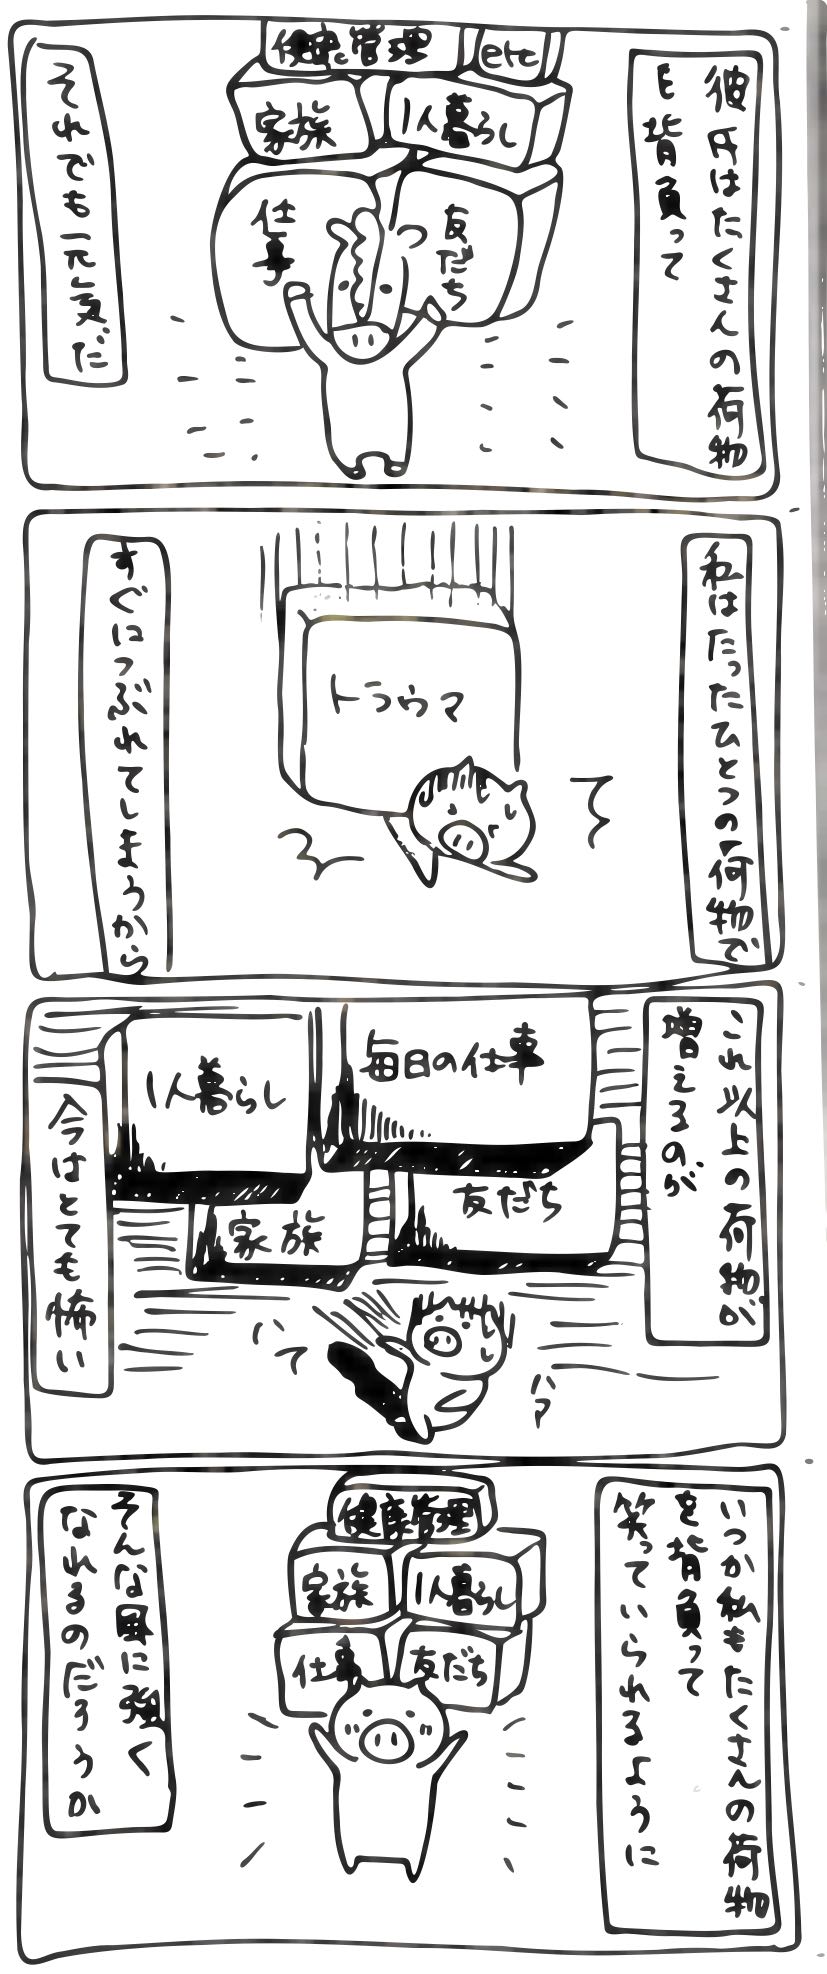 彼氏はたくさんの荷物
を背負って
健康管理
etc
家族
1人暮らし
仕事
友だち
それでも元気だ
私はたったひとつの荷物で
トラウマ
すぐにつぶれてしまうから
これ以上の荷物が
増えるのが
毎日の仕事
1人暮らし
友だち
家族
ハァ
ハァ
今はとても怖い
いつか私もたくさんの荷物
を背負って
笑っていられるように
健康管理
家族
1人暮らし
仕事
友だち
そんな風に強く
なれるのだろうか